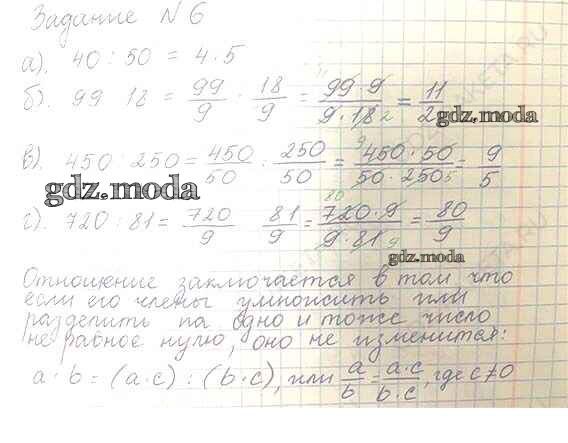 Задание N6
а). 40 : 50 = 4 · 5
б). 99 18 = 99/9 · 18/9 = 99 · 9/9 · 18 2 = 11/2
gdz.moda
в). 450 : 250 = 450/50 : 250/50 = 450 · 50/50 · 250 5 = 9/5
gdz.moda
г). 720 : 81 = 720/9 81/9 = 720 · 9/9 · 81 9 = 80/9
gdz.moda
Отношение заключается в том что
если его члены умножить или
разделить на одно и тоже число
не равное нулю, оно не изменится:
a · b = (a · c) : (b · c), или a/b = a · c/b · c, где c ≠ 0